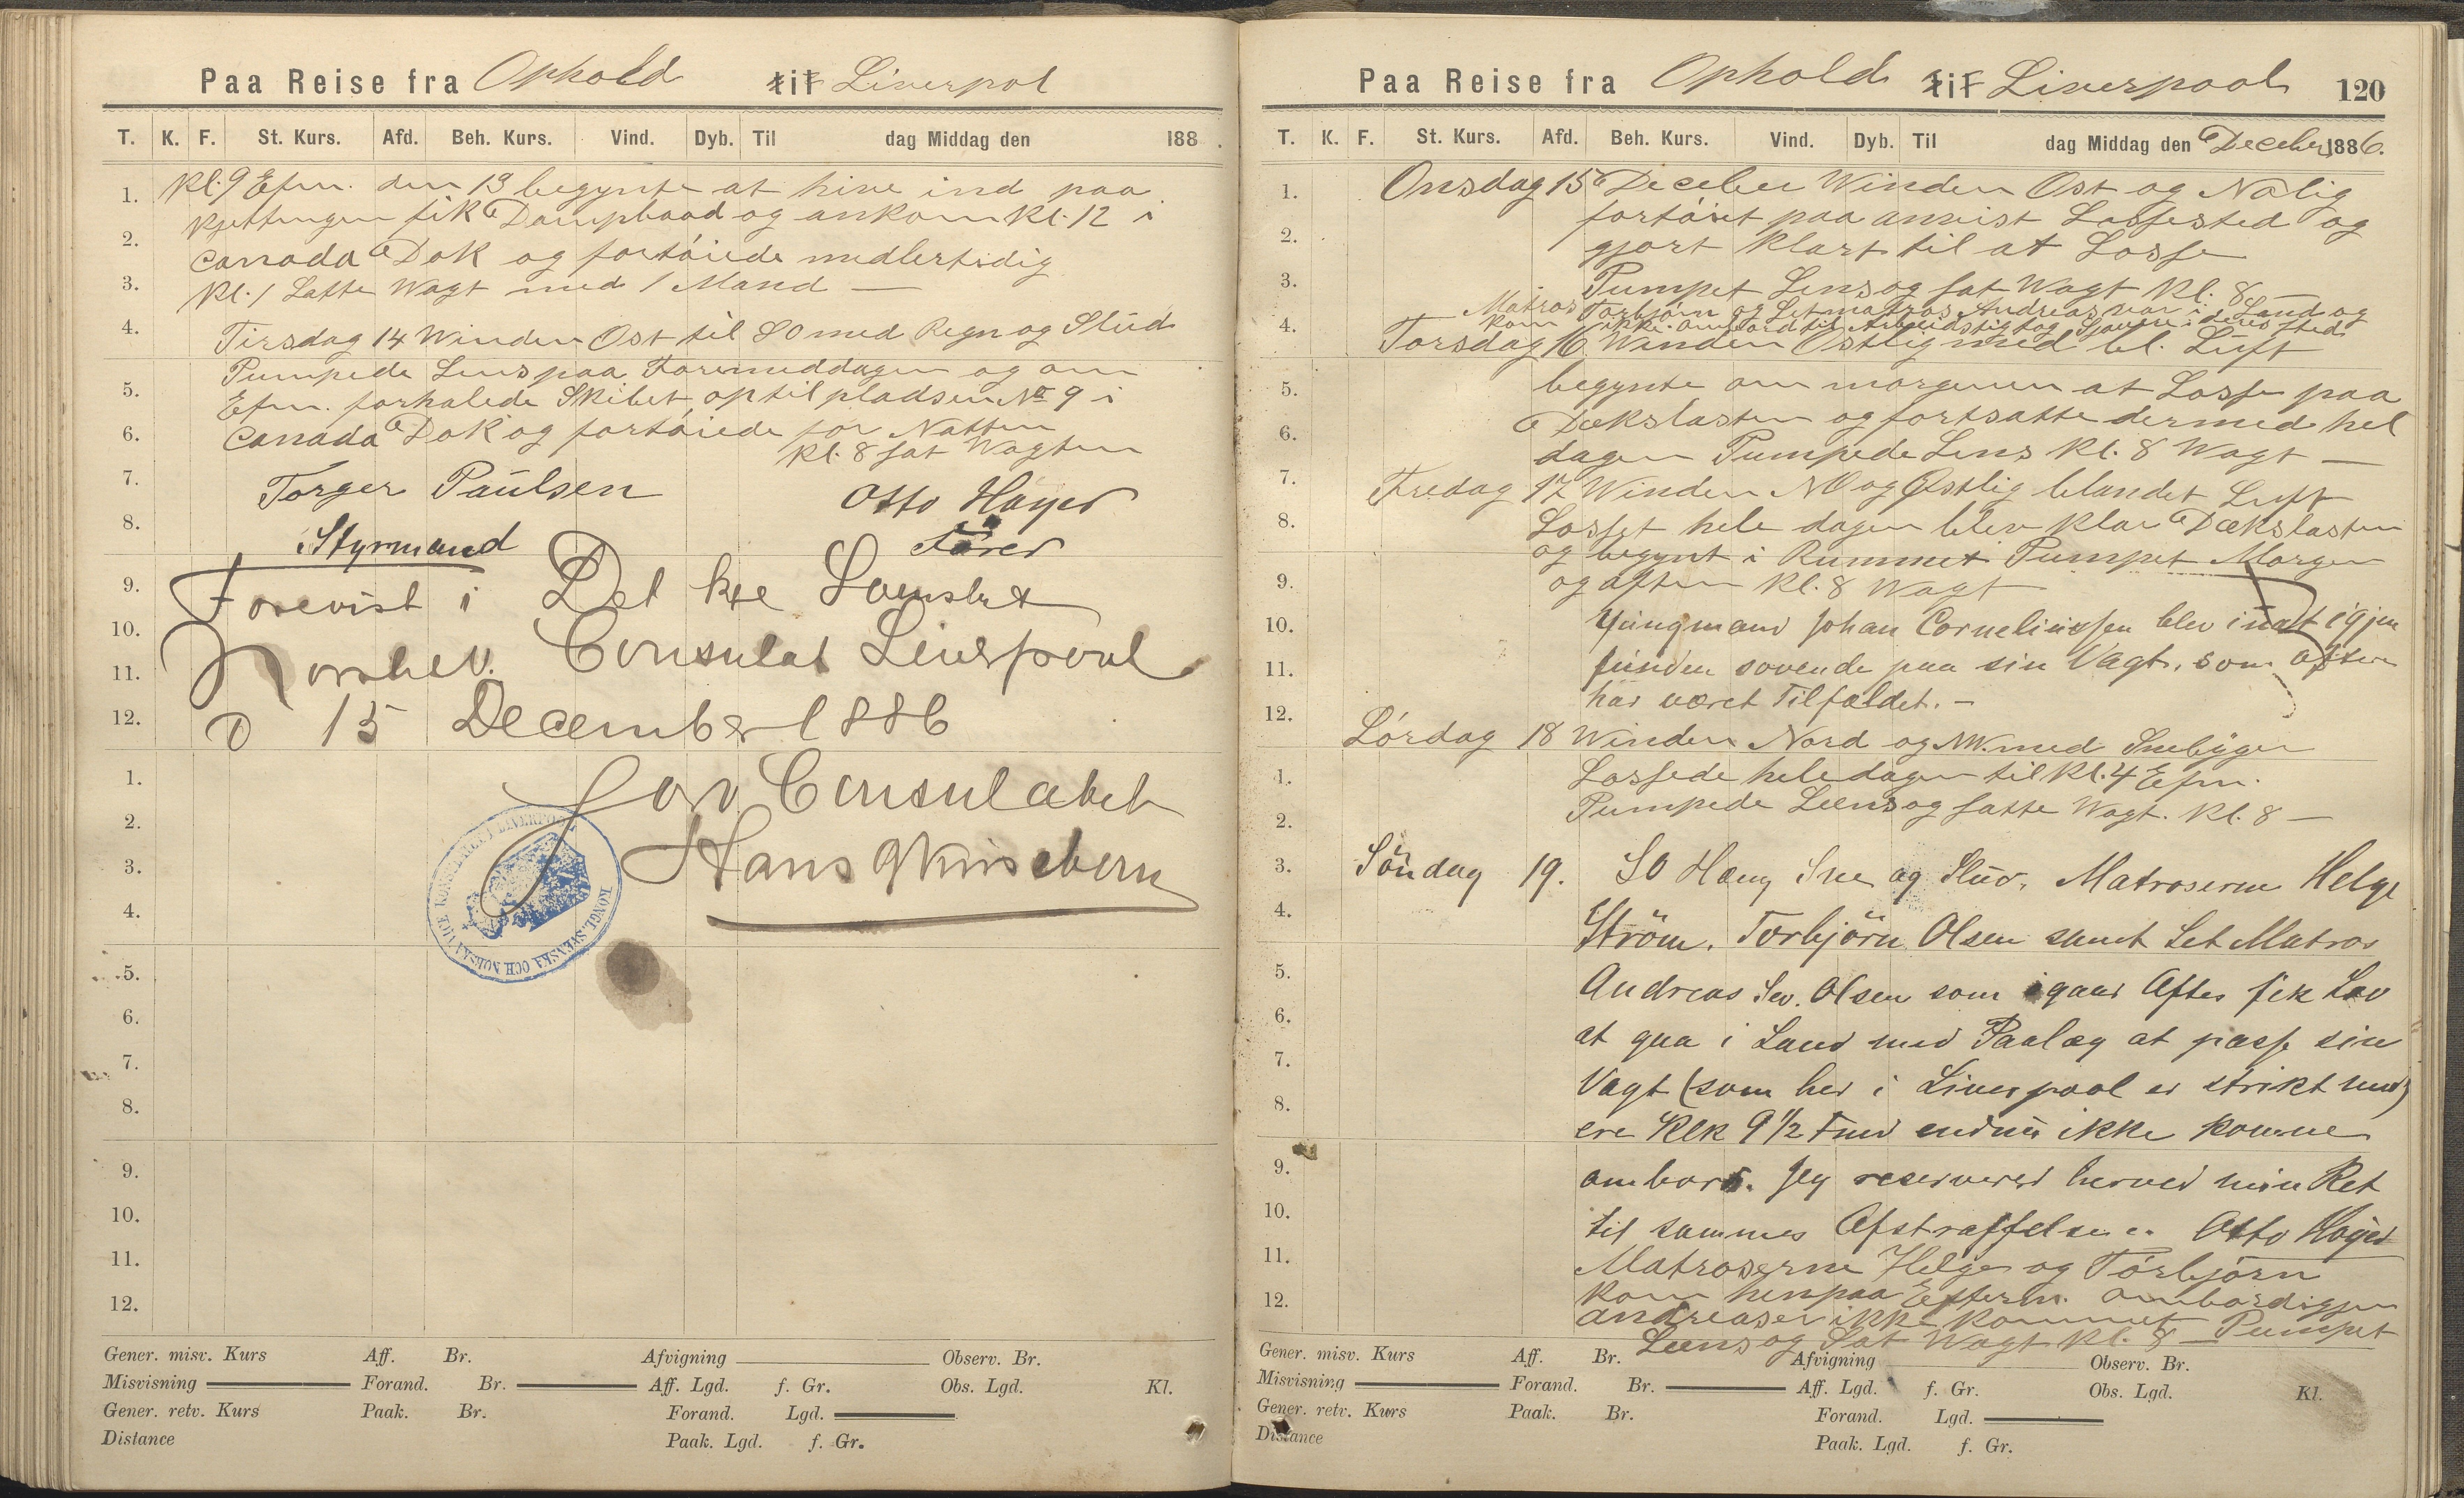 Paa Reise fra Ophold til Liverpol
T. K. F. St. Kurs. Afd. Beh. Kurs. Vind. Dyb. Til dag Middag den 188 .
Kl. 9 Efm. den 13 begynte at hive ind paa
Kjettingen fik Dampbaad og ankom Kl. 12 i
Canada Dok og fortöiede midlertidig
Kl. 1 Satte Wagt med 1 Mand —
Tirsdag 14 Winden Ost til SO med Regn og Slud
Pumpede Lens paa Formeddagen og om
Efm. forhalede Skibet op til pladsen No 9 i
Canada Dok og fortöiede for Natten
Kl. 8 sat Wagten
Torger Paulsen Otto Høyer
Styrmand Förer
Forevist i Det kge Svenske
Norske V. Consulat Liverpool
d 15 December 1886
For Consulatet
Hans
KONGL. SVENSKA OCH NORSKA VICE KONSULATET I LIVERPOOL
1.
2.
3.
4.
5.
6.
7.
8.
9.
10.
11.
12.
1.
2.
3.
4.
5.
6.
7.
8.
9.
10.
11.
12.
Gener. misv. Kurs Aff. Br. Afvigning Observ. Br.
Misvisning Forand. Br. Aff. Lgd. f. Gr. Obs. Lgd. Kl.
Gener. retv. Kurs Paak. Br. Forand. Lgd.
Distance Paak. Lgd. f. Gr.
Paa Reise fra Ophold til Liverpool 120
T. K. F. St. Kurs. Afd. Beh. Kurs. Vind. Dyb. Til dag Middag den Deceber 1886.
Onsdag 15 Deceber Winden Ost og Nolig
fortöiet paa anvist Lossested og
gjort Klart til at Losse
Pumpet Lens og sat Wagt Kl. 8 —
Matros Torbjörn og Letmatros Andreas var i Land og
kom ikke ombord til Arbeidstig tog Sjauere i deres sted
Torsdag 16 Winden Ostlig med bl. Luft
begynte om morgenen at Losse paa
Dækslasten og fortsatte dermed hel
dagen Pumpede Lens Kl. 8 Wagt —
Fredag 17 Winden NO og Østlig blandet Luft
Losset hele dagen blev klar Dækslasten
og begynt i Rummet Pumpet Morgen
og aften Kl. 8 Wagt
Yungmand Johan Corneliussen blev inat igjen
funden sovende paa sin Vagt, som ofter
har været Tilfældet. —
Lördag 18 Winden Nord og NW. med Snebyger
Lossede hele dagen til Kl. 4 Efm.
Pumpede Læns og satte Wagt. Kl. 8 —
Söndag 19. SO Hæng Sne og Slud. Matroserne Helge
Ström, Torbjörn Olsen samt Let Matros
Andreas Sev. Olsen som igaar Aftes fik Lov
at gaa i Land med Paalæg at passe sin
Vagt (som her i Liverpool er strikt med)
ere Klk 9 1/2 Fmd endnu ikke komne
ombord. Jeg reserverer herved min Ret
til sammes Afstraffelse. Otto Høyer
Matroserne Helge og Törbjörn
kom henpaa Efterm. ombord igjen
Andreas er ikke kommet Pumpet
Læns og Sat Wagt Kl. 8
1.
2.
3.
4.
5.
6.
7.
8.
9.
10.
11.
12.
1.
2.
3.
4.
5.
6.
7.
8.
9.
10.
11.
12.
Gener. misv. Kurs Aff. Br. Afvigning Observ. Br.
Misvisning Forand. Br. Aff. Lgd. f. Gr. Obs. Lgd. Kl.
Gener. retv. Kurs Paak. Br. Forand. Lgd.
Distance Paak. Lgd. f. Gr.